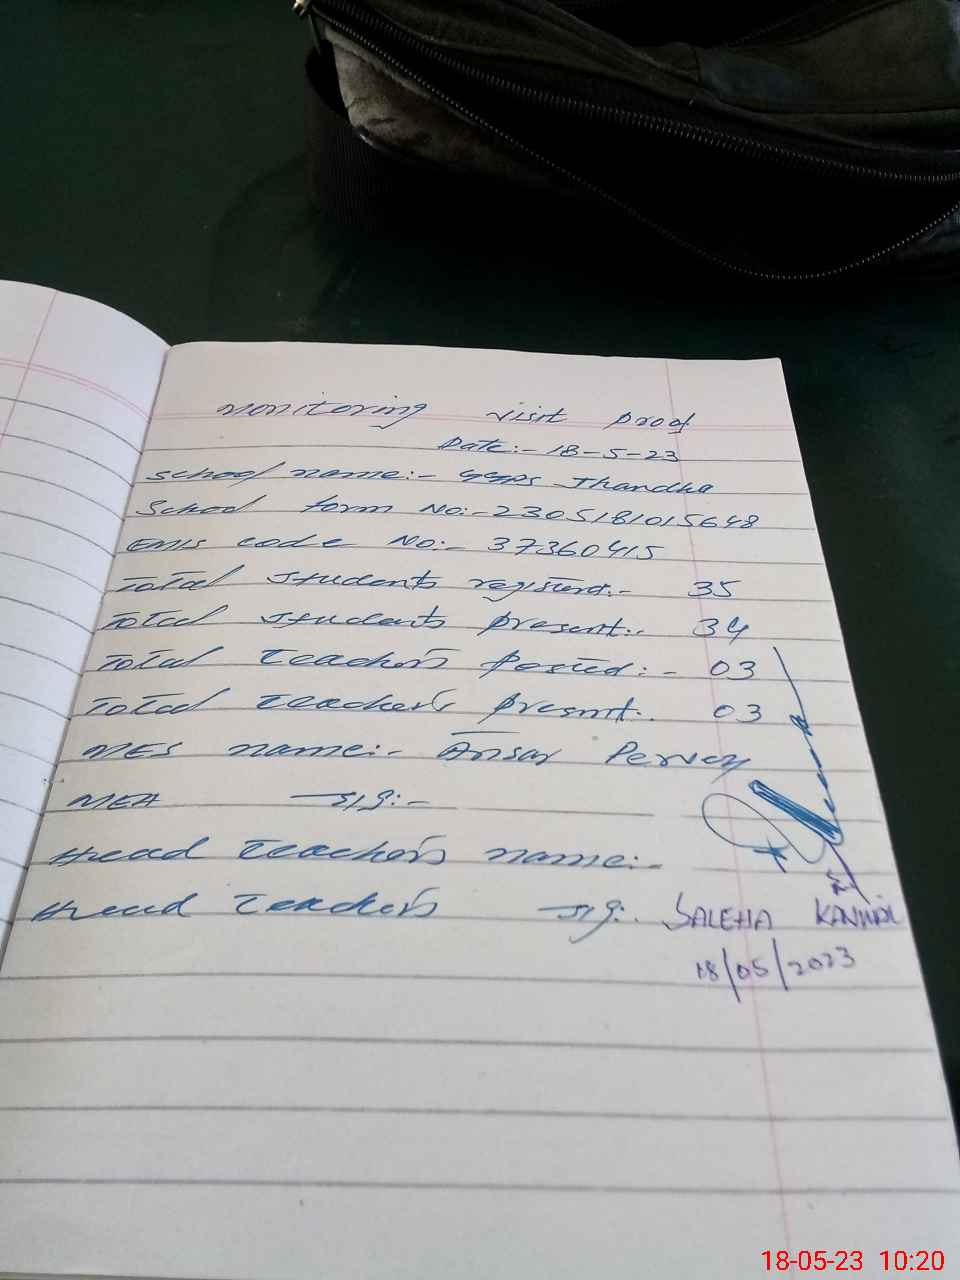 Monitoring visit proof
Date:- 18-5-23
School name:- GGPS Jhandha
School form No:- 2305181015648
EMIS code No:- 37360415
Total students registerd:- 35
Total students present:- 34
Total teacher's Posted:- 03
Total teacher's present:- 03
MES name:- Ansar Pervez
MEA sig:-
Head teacher's name:-
Head teacher's sig:- SALEHA KANWAL
18/05/2023
18-05-23 10:20